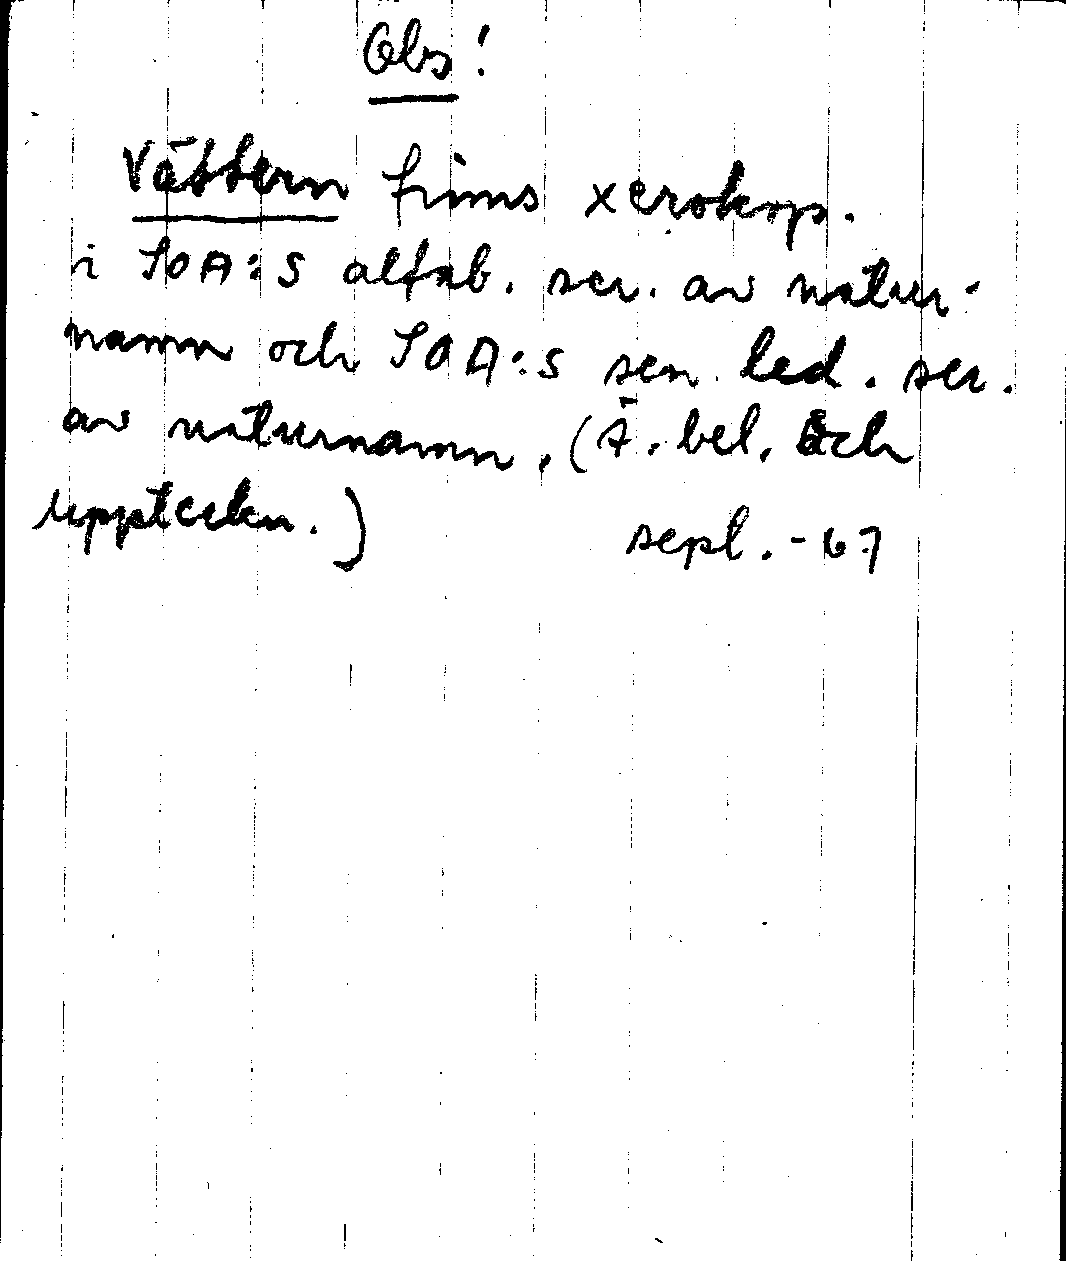 Obs!
Vättern finns xerokop.
i SOA:s alfab. ser. av natur-
namn och SOA:s sen. led. ser.
av naturnamn. (Ä. bel. och
uppteckn.)
sept. -67